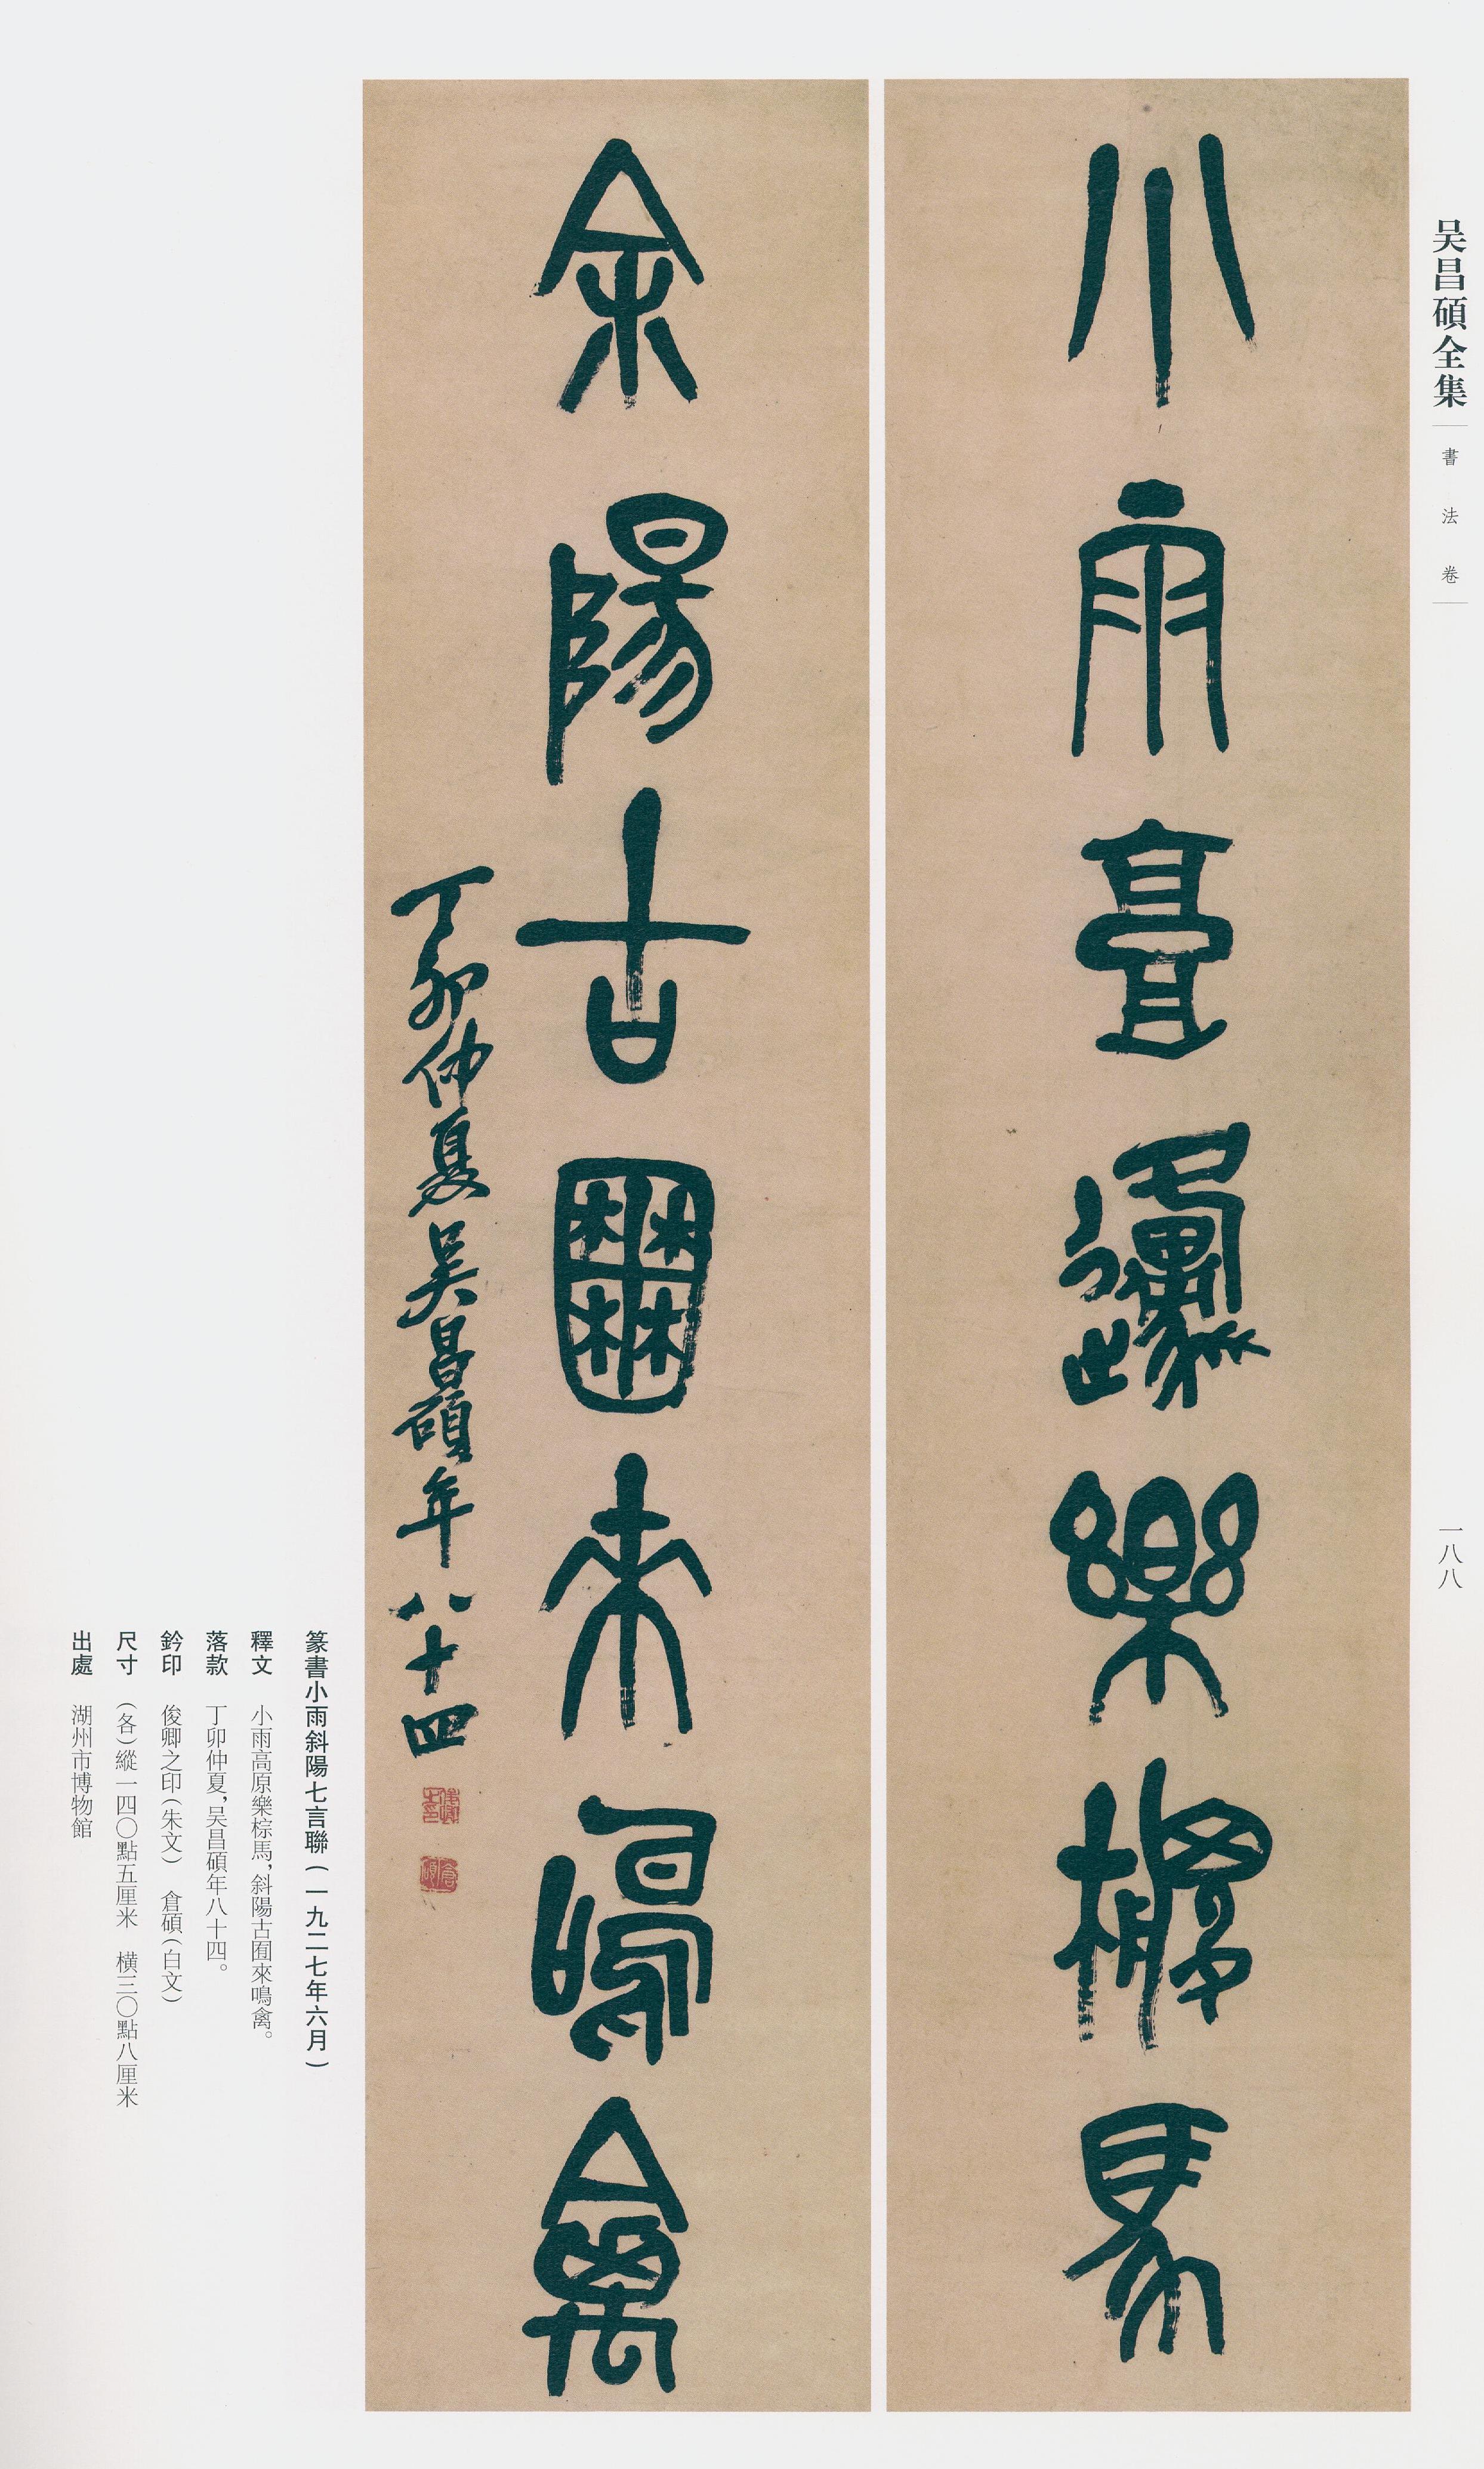 吴昌碩全集
書法卷
一八八
小雨高原樂椶馬
余陽古囿來鳴禽
丁卯仲夏吴昌碩年八十四
俊卿之印
倉碩
篆書小雨斜陽七言聯（一九二七年六月）
釋文 小雨高原樂棕馬，斜陽古囿來鳴禽。
落款 丁卯仲夏，吴昌碩年八十四。
鈐印 俊卿之印（朱文） 倉碩（白文）
尺寸 （各）縱一四〇點五厘米 橫三〇點八厘米
出處 湖州市博物館